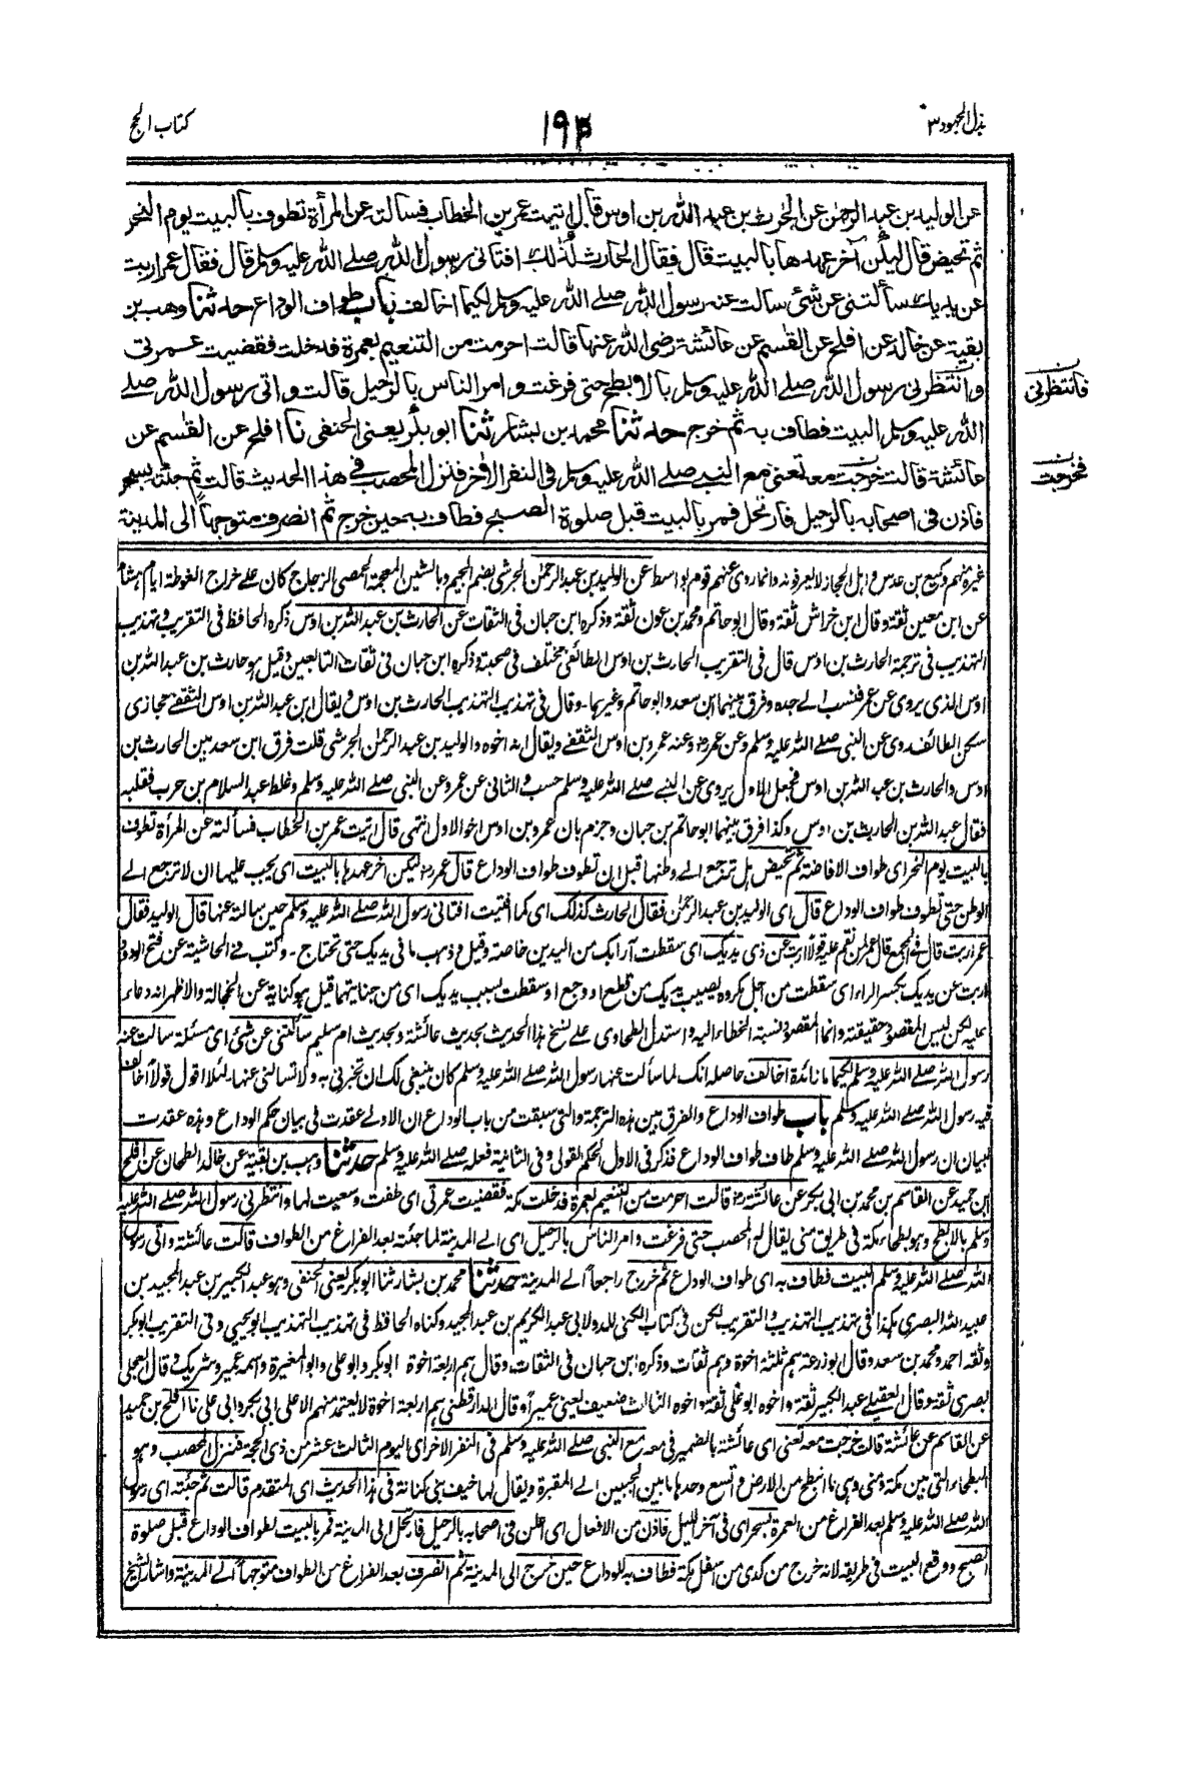 بذل المجهود ٣
١٩٣
كتاب الحج
عن الوليد بن عبد الرحمن عن الحرث بن عبد الله بن اوس قال اتيت عمر بن الخطاب فسألته عن المرأة تطوف بالبيت يوم النحر
ثم تحيض قال ليكن آخر عهدها بالبيت قال فقال الحارث كذلك افتانى رسول الله صلے الله عليه وسلم قال فقال عمر اربت
عن يديك سألتنى عن شئ سالت عنه رسول الله صلے الله عليه وسلم لكيما اخالف باب طواف الوداع حدثنا وهب بن
بقية عن خالد عن افلح عن القسم عن عائشة رضى الله عنها قالت احرمت من التنعيم بعمرة فدخلت فقضيت عمرتى
وانتظرنى رسول الله صلے الله عليه وسلم بالابطح حتى فرغت وامر الناس بالرحيل قالت واتى رسول الله صلے
فانتظرنى
الله عليه وسلم البيت فطاف به ثم خرج حدثنا محمد بن بشار ثنا ابو بكر يعنى الحنفى نا افلح عن القسم عن
عائشة قالت خرجت معه تعنى مع النبى صلے الله عليه وسلم فى النفر الاخر فنزل المحصب فى هذا الحديث قالت ثم جئته بسحر
فخرجت
فاذن فى اصحابه بالرحيل فارتحل فمر بالبيت قبل صلوة الصبح فطاف به حين خرج ثم انصرف متوجهاً الى المدينة
غيره منهم وكيع بن عدس واهل الحجاز لا يعرفونه وانما روى عنهم قوم بواسط عن الوليد بن عبد الرحمن الجرشى بضم الجيم وبالشين المعجمة الحمصى الزجاج كان علے خراج الغوطة ايام هشام
عن ابن معين ثقة وقال ابن خراش ثقة وقال ابو حاتم ومحمد بن عون ثقة وذكره ابن حبان فى الثقات عن الحارث بن عبد الله بن اوس ذكره الحافظ فى التقريب وتهذيب
التهذيب فى ترجمة الحارث بن اوس قال فى التقريب الحارث بن اوس الطائفى مختلف فى صحبته وذكره ابن حبان فى ثقات التابعين وقيل هو حارث بن عبد الله بن
اوس الذى يروى عن عمر فنسب الے جده وفرق بينهما ابن سعد وابو حاتم وغيرهما - وقال فى تهذيب التهذيب الحارث بن اوس ويقال ابن عبد الله بن اوس الثقفے حجازى
سكن الطائف روى عن النبى صلے الله عليه وسلم وعن عمر وعنه عمرو بن اوس الثقفے ويقال انه اخوه والوليد بن عبد الرحمن الجرشى قلت فرق ابن سعد بين الحارث بن
اوس والحارث بن عبد الله بن اوس فجعل الاول يروى عن النبے صلے الله عليه وسلم حسب والثانى عن عمر وعن النبى صلے الله عليه وسلم وغلط عبد السلام بن حرب فقلبه
فقال عبد الله بن الحارث بن اوس وكذا فرق بينهما ابو حاتم بن حبان وجزم بان عمرو بن اوس اخو الاول انتهى قال اتيت عمر بن الخطاب فسألته عن المرأة تطوف
بالبيت يوم النحر اى طواف الافاضة ثم تحيض هل ترجع الے وطنها قبل ان تطوف طواف الوداع قال عمر ليكن آخر عهدها بالبيت اى يجب عليها ان لا ترجع الے
الوطن حتى تطوف طواف الوداع قال اى الوليد بن عبد الرحمن فقال الحارث كذلك اى كما افتيت افتانى رسول الله صلے الله عليه وسلم حين سالته عنها قال الوليد فقال
عمر اربت قال فى المجمع قال عمر لمن نقم عليه قولا اربت عن ذى يديك اى سقطت آرابك من اليدين خاصة وقيل ذهب ما فى يديك حتى تحتاج - وكتب فے الحاشية عن فتح الودود
اربت عن يديك بكسر الراء اى سقطت من اجل مكروه يصيب يديك من قطع او وجع او سقطت بسبب يديك اى من جنايتهما قيل هو كناية عن الخجالة والاظهر انه دعاء
عليه لكن ليس المقصود حقيقته وانما المقصود نسبة الخطاء اليه واستدل الطحاوى علے نسخ هذا الحديث بحديث عائشة وبحديث ام سليم سألتنى عن شئى اى مسئلة سالت عنه
رسول الله صلے الله عليه وسلم لكيما ما زائدة اخالف حاصله انك لما سألت عنها رسول الله صلے الله عليه وسلم كان ينبغى لك ان تخبرنى به ولا تسالنى عنها لئلا اقول قولاً اخالف
فيه رسول الله صلے الله عليه وسلم باب طواف الوداع والفرق بين هذه الترجمة والتى سبقت من باب الوداع ان الاولے عقدت فى بيان حكم الوداع وهذه عقدت
لبيان ان رسول الله صلے الله عليه وسلم طاف طواف الوداع فذكر فى الاول الحكم القولى وفى الثانية فعله صلے الله عليه وسلم حدثنا وهب بن بقية عن خالد الطحان عن افلح
ابن حميد عن القاسم بن محمد بن ابى بكر عن عائشة قالت احرمت من التنعيم بعمرة فدخلت مكة فقضيت عمرتى اى طفت وسعيت لها وانتظرنى رسول الله صلے الله عليه
وسلم بالابطح وهو بطحاء مكة فى طريق منى يقال له المحصب حتى فرغت وامر الناس بالرحيل اى الے المدينة لما جئته بعد الفراغ من الطواف قالت عائشة واتى رسول
الله صلے الله عليه وسلم البيت فطاف به اى طواف الوداع ثم خرج راجعاً الے المدينة حدثنا محمد بن بشار ثنا ابو بكر يعنى الحنفى وهو عبد الكبير بن عبد المجيد بن
عبيد الله البصرى هكذا فى تهذيب التهذيب والتقريب لكن فى كتاب الكنى للدولابى عبد الكريم بن عبد المجيد وكناه الحافظ فى تهذيب التهذيب ابو يحيى وفى التقريب ابو بكر
وثقه احمد ومحمد بن سعد وقال ابو زرعة هم ثلثة اخوة وهم ثقات وذكره ابن حبان فى الثقات وقال هم اربعة اخوة ابو بكر وابو على وابو المغيرة واسمه عمير وشريك قال العجلى
بصرى ثقة وقال العقيلے عبد الكبير ثقة واخوه ابو على ثقة واخوه الثالث ضعيف يعنى عميراً وقال الدارقطنى هم اربعة اخوة لا يعتمد منهم الا على ابى بكر وابى على نا افلح بن حميد
عن القاسم عن عائشة قالت خرجت معه تعنى اى عائشة بالضمير فى معه مع النبى صلے الله عليه وسلم فى النفر الاخر اى اليوم الثالث عشر من ذى الحجة فنزل المحصب وهو
البطحاء التى بين مكة ومنى وهى ما انبطح من الارض واتسع وحدها ما بين الجبلين الے المقبرة ويقال لها خيف بنى كنانة فى هذا الحديث اى المتقدم قالت ثم جئته اى رسول
الله صلے الله عليه وسلم بعد الفراغ من العمرة بسحر اى فى آخر الليل فاذن من الافعال اى اعلن فى اصحابه بالرحيل فارتحل الى المدينة فمر بالبيت لطواف الوداع قبل صلوة
الصبح ووقع البيت فى طريقه لانه خرج من كدى من اسفل مكة فطاف به للوداع حين خرج الى المدينة ثم انصرف بعد الفراغ من الطواف متوجهاً الے المدينة واشار الشيخ